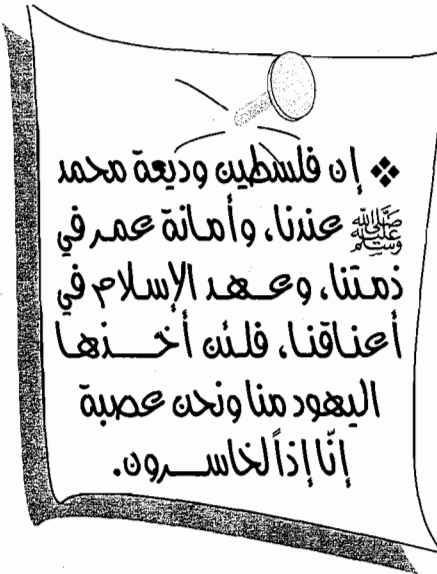 ❖ إن فلسطين وديعة محمد
ﷺ عندنا، وأمانة عمر في
ذمتنا، وعهد الإسلام في
أعناقنا، فلئن أخذها
اليهود منا ونحن عصبة
إنّا إذاً لخاسرون.